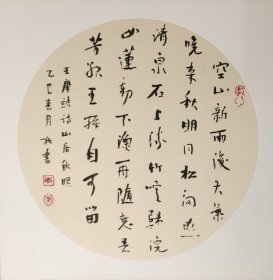 空山新雨後天氣
晚来秋明月松間照
清泉石上流竹喧歸浣
女蓮動下漁舟隨意春
芳歇王孫自可留
王摩詰詩山居秋暝
乙巳春月書